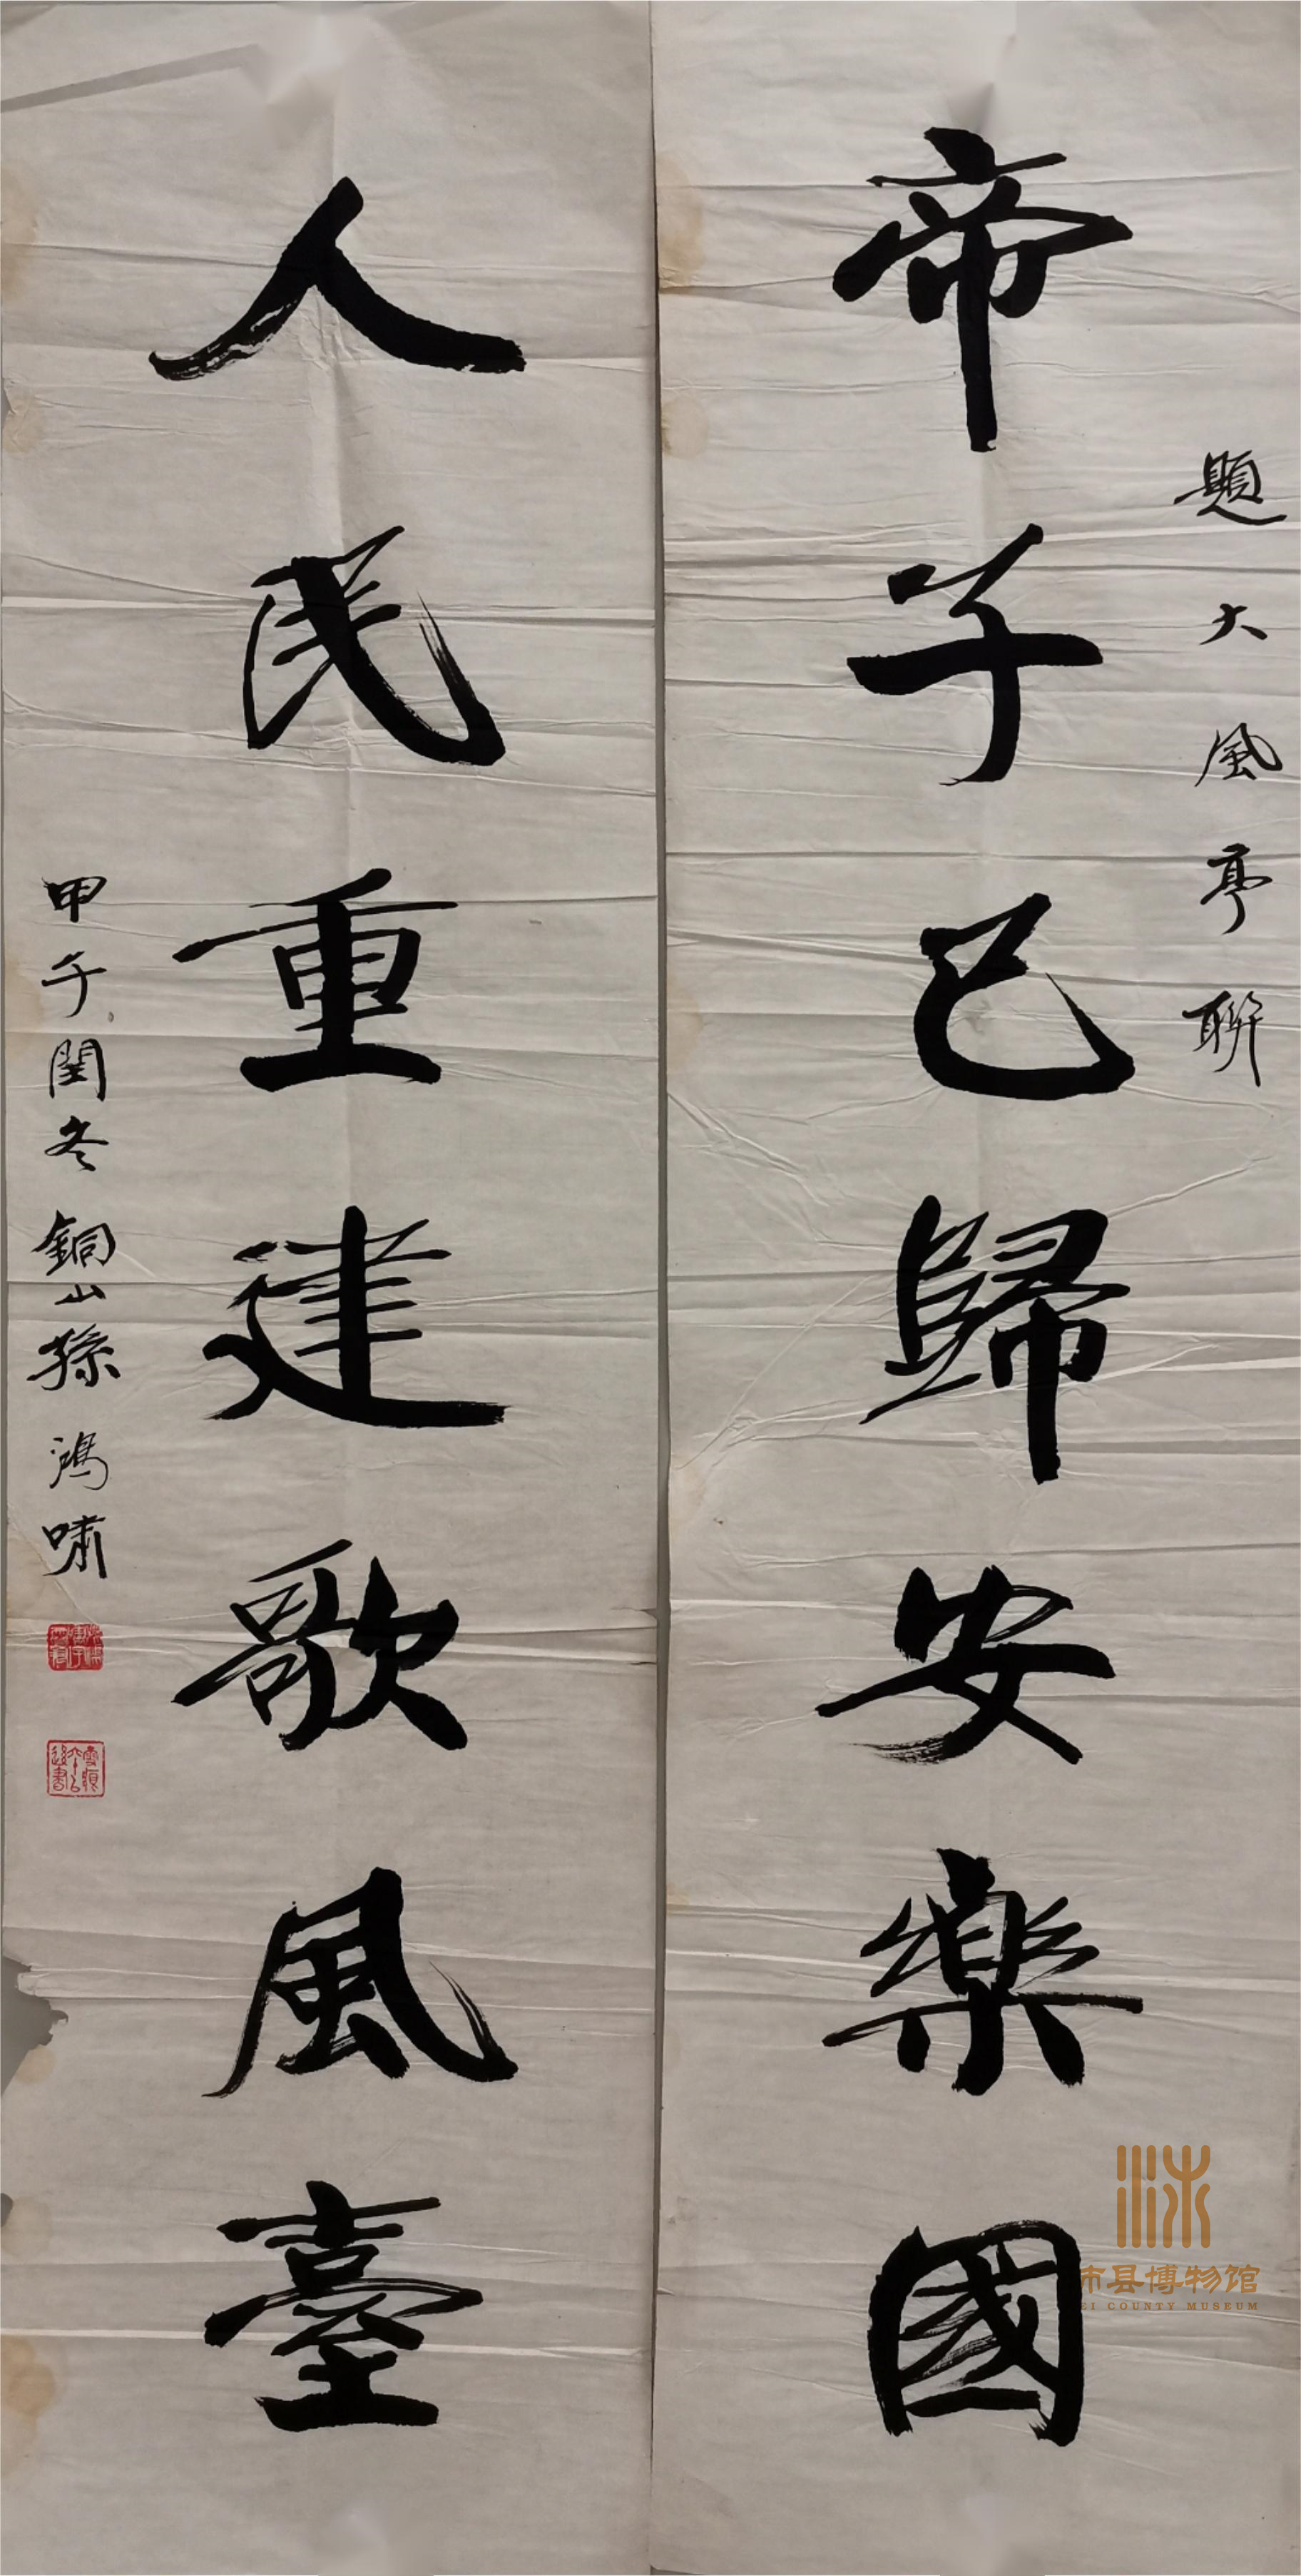 題大風亭聯
帝子已歸安樂國
人民重建歌風臺
甲午闰冬銅山孫鴻嘯
沛县博物馆
EI COUNTY MUSEUM